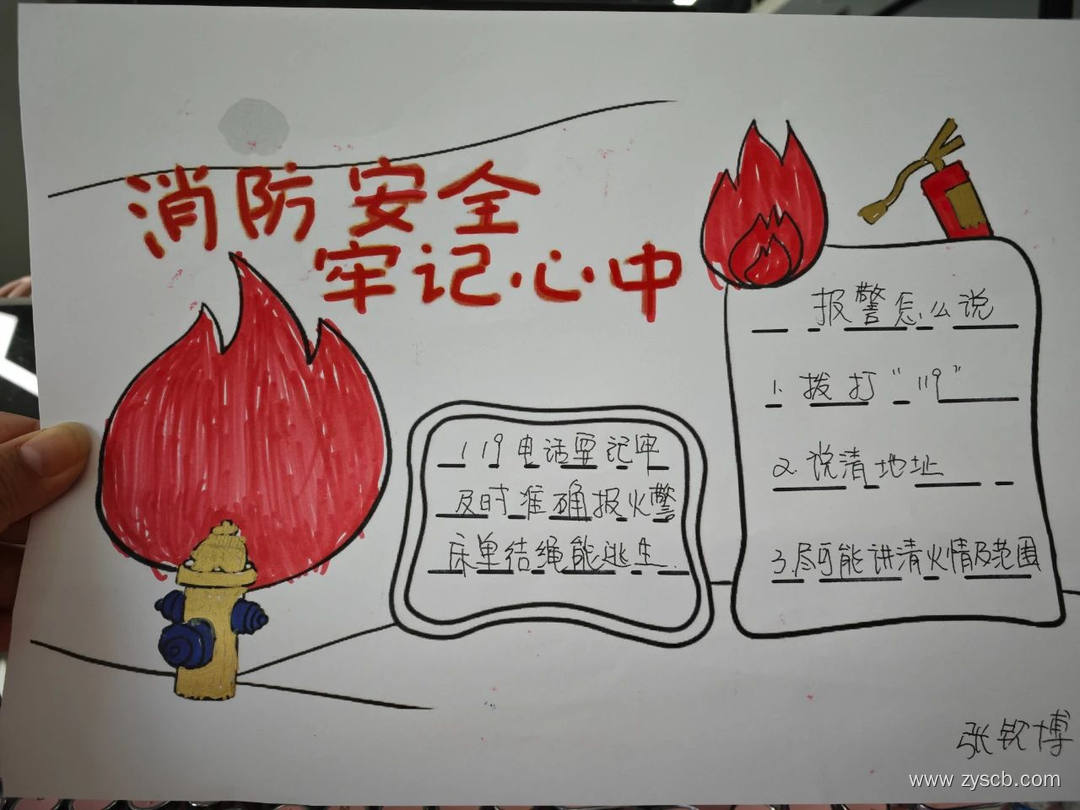 消防安全
牢记心中
119电话要记牢
及时准确报火警
床单结绳能逃生.
报警怎么说
1. 拨打“119”
2. 说清地址
3.尽可能讲清火情及范围
张钦博
www.zyscb.com